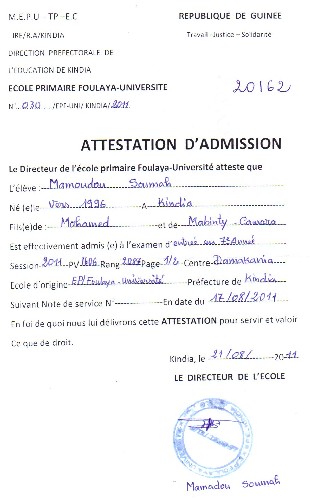 M.E.P U - TP - E C
REPUBLIQUE DE GUINEE
IRE/R.A/KINDIA
Travail - Justice – Solidarité
DIRECTION PREFECTORALE DE
L'EDUCATION DE KINDIA
ECOLE PRIMAIRE FOULAYA-UNIVERSITE
20162
N°..030..../EPF-UNI/ KINDIA/2011
ATTESTATION D'ADMISSION
Le Directeur de l'école primaire Foulaya-Université atteste que
L'élève : Mamoudou Soumah
Né (e)le Vers 1996 A Kindia
Fils(e)de: Mohamed et de Mahinty Camara
Est effectivement admis (e) à l'examen d'entrée en 7e Année
Session-2011-PV 1606-Rang 2084-Page-1/2-Centre-Damakania
Ecole d'origine-EP/ Foulaya-Université Préfecture de Kindia
Suivant Note de service N° En date du 17/08/2011
En foi de quoi nous lui délivrons cette ATTESTATION pour servir et valoir
Ce que de droit.
Kindia, le 21/08/ 2011
LE DIRECTEUR DE L'ECOLE
Mamadou Soumah